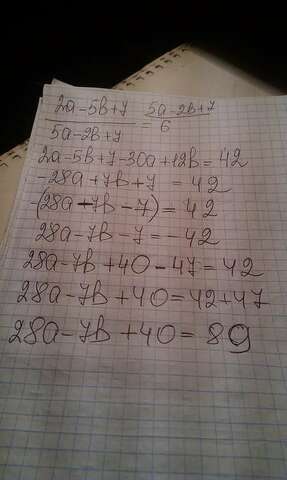 2a-5b+7 5a-2b+7
5a-2b+7 = 6
2a-5b+7-30a+12b=42
-28a+7b+7 = 42
-(28a-7b-7)=42
28a-7b-7=-42
28a-7b+40-47=42
28a-7b+40=42+47
28a-7b+40=89